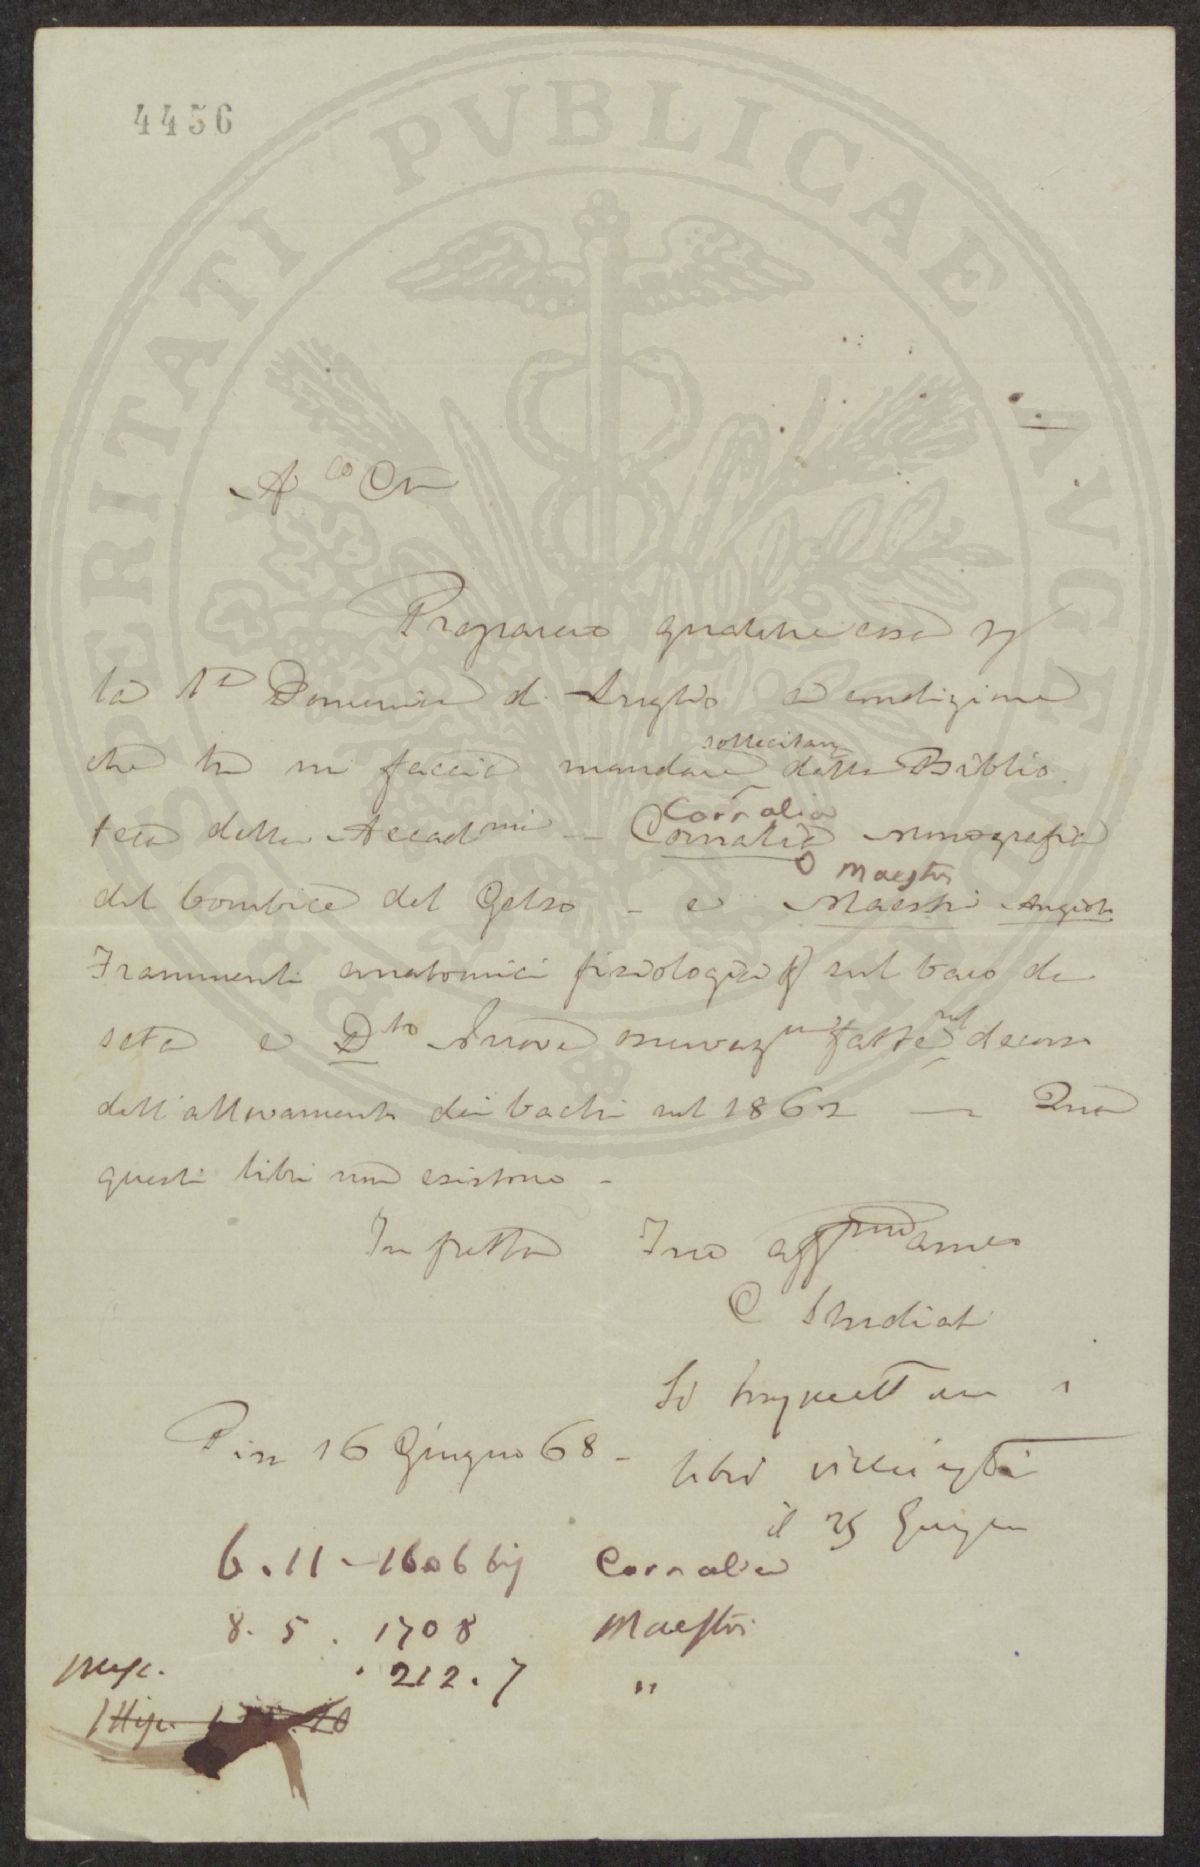 4456
PROSPERITATI PVBLICAE AVGENDAE
A co Cm
Preparerò qualche cosa p
la 1a Domenica di Luglio a condizione
che tu mi faccia mandare sollecitam dalla Biblio
teca della Accadmia — Cornalia Cornalia Monografia
del bombice del Gelso — e Maestri Maestri Angiolo
Frammenti anatomici fisiologici sul baco da
seta e Dto Nuove osservazni fatte nel decorso
dell'allevamento dei bachi nel 1862 — Qua
questi libri non esistono —
In fretta Tuo affmo amico
C Studiati
Pisa 16 Giugno 68 —
Si trasmettono i
libri
il 25 Giugno
6.11 — 1606 bis Cornalia
8.5. 1708 Maestri
Misc. . 212.7 "